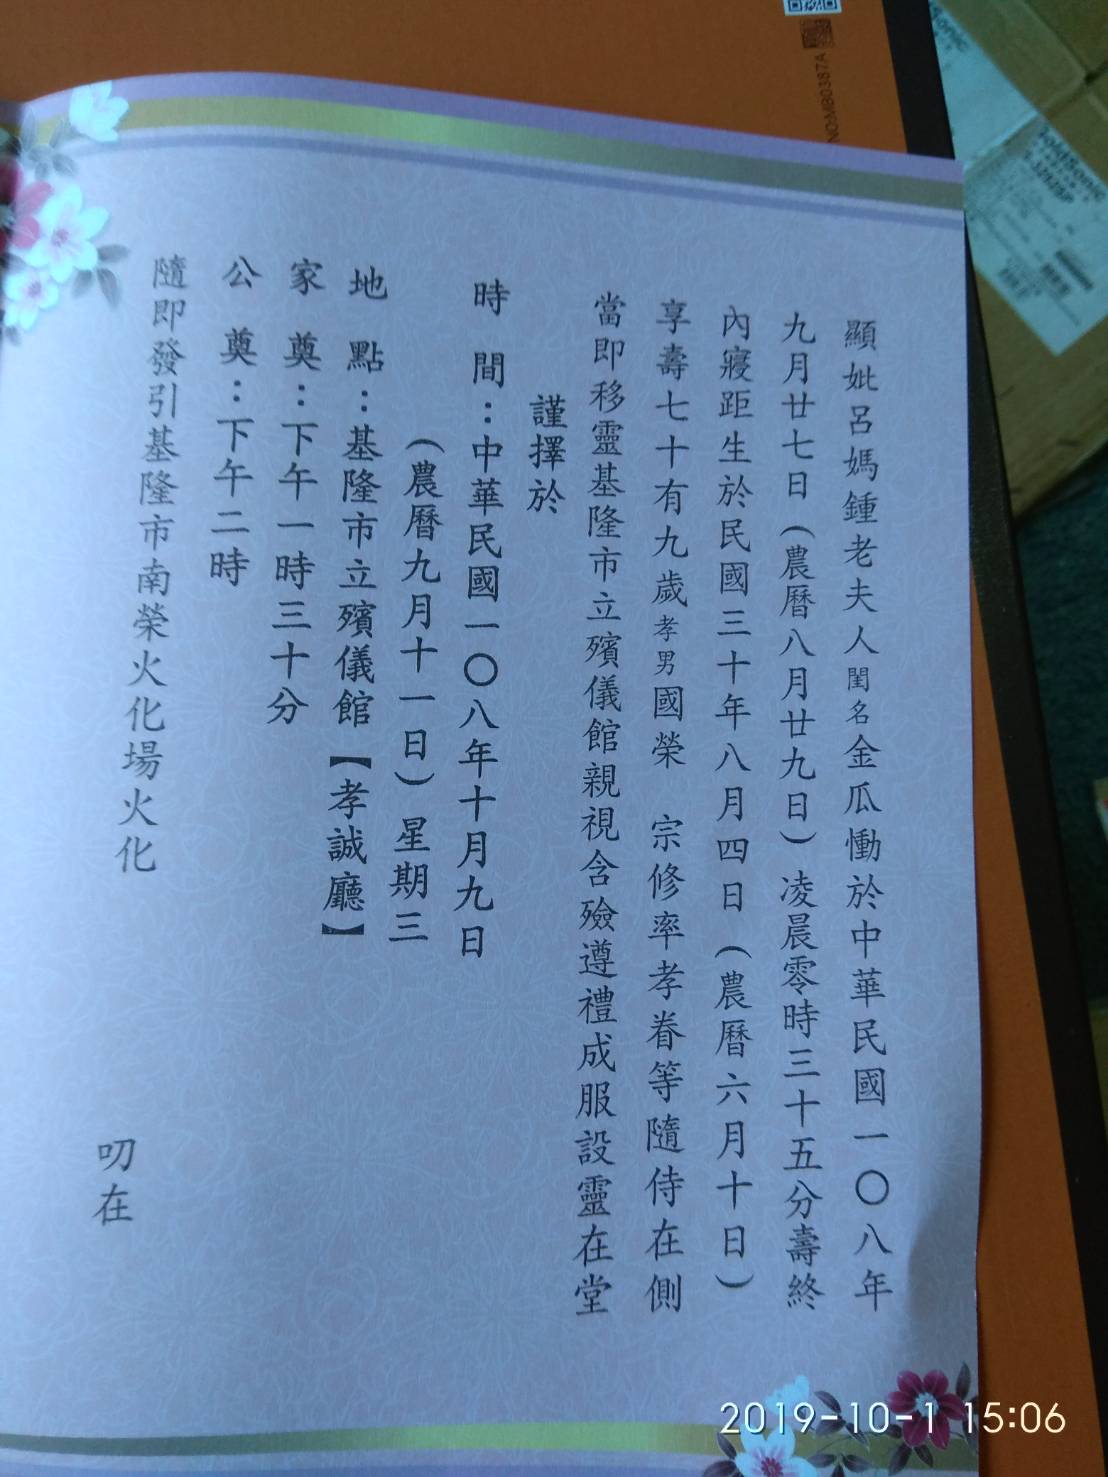 顯妣呂媽鍾老夫人閨名金瓜慟於中華民國一〇八年
九月廿七日(農曆八月廿九日)凌晨零時三十五分壽終
內寢距生於民國三十年八月四日(農曆六月十日)
享壽七十有九歲孝男國榮 宗修率孝眷等隨侍在側
當即移靈基隆市立殯儀館親視含殮遵禮成服設靈在堂
謹擇於
時 間:中華民國一〇八年十月九日
(農曆九月十一日)星期三
地 點:基隆市立殯儀館【孝誠廳】
家 奠:下午一時三十分
公 奠:下午二時
隨即發引基隆市南榮火化場火化
叨在
NO:MB0387A
Panasonic
2019-10-1 15:06